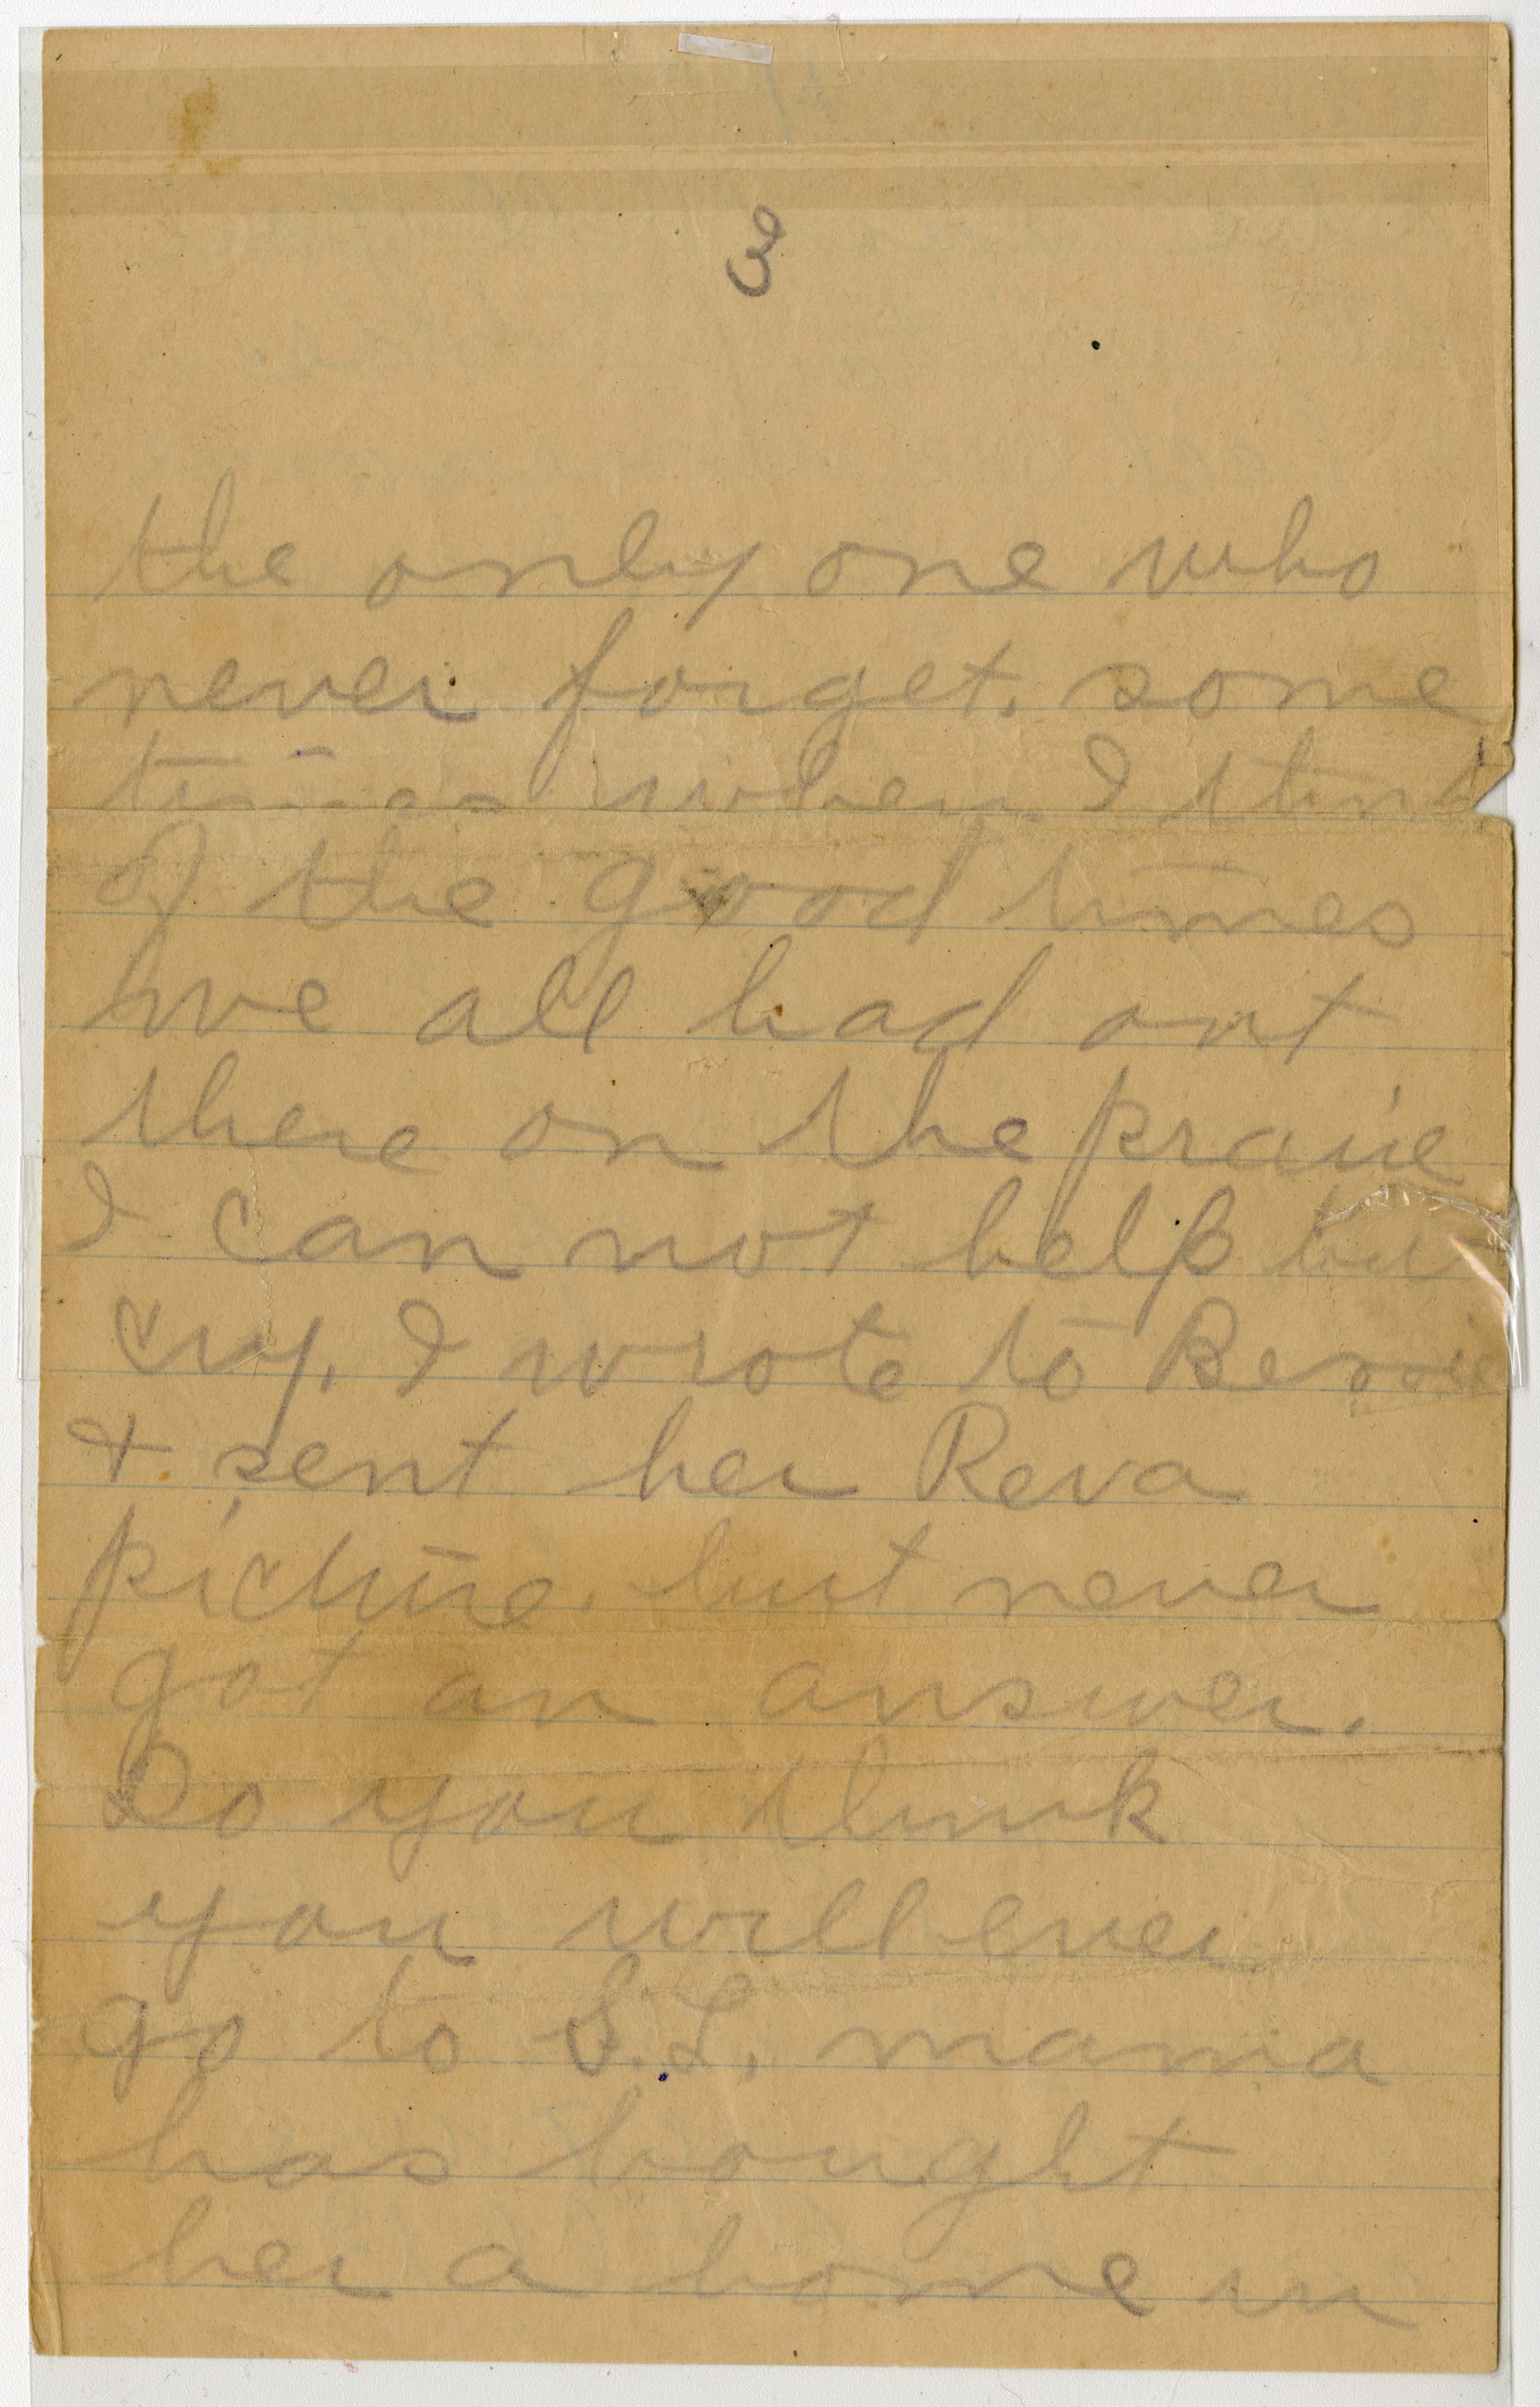 3
the only one who
never forget. some
times when I think
of the good times
we all had out
there on the praiie
I can not help but
cry. I wrote to Bessie
& sent her Reva
picture. but never
got an answer.
Do you think
you will ever
go to S.L. mama
has bought
her a home in